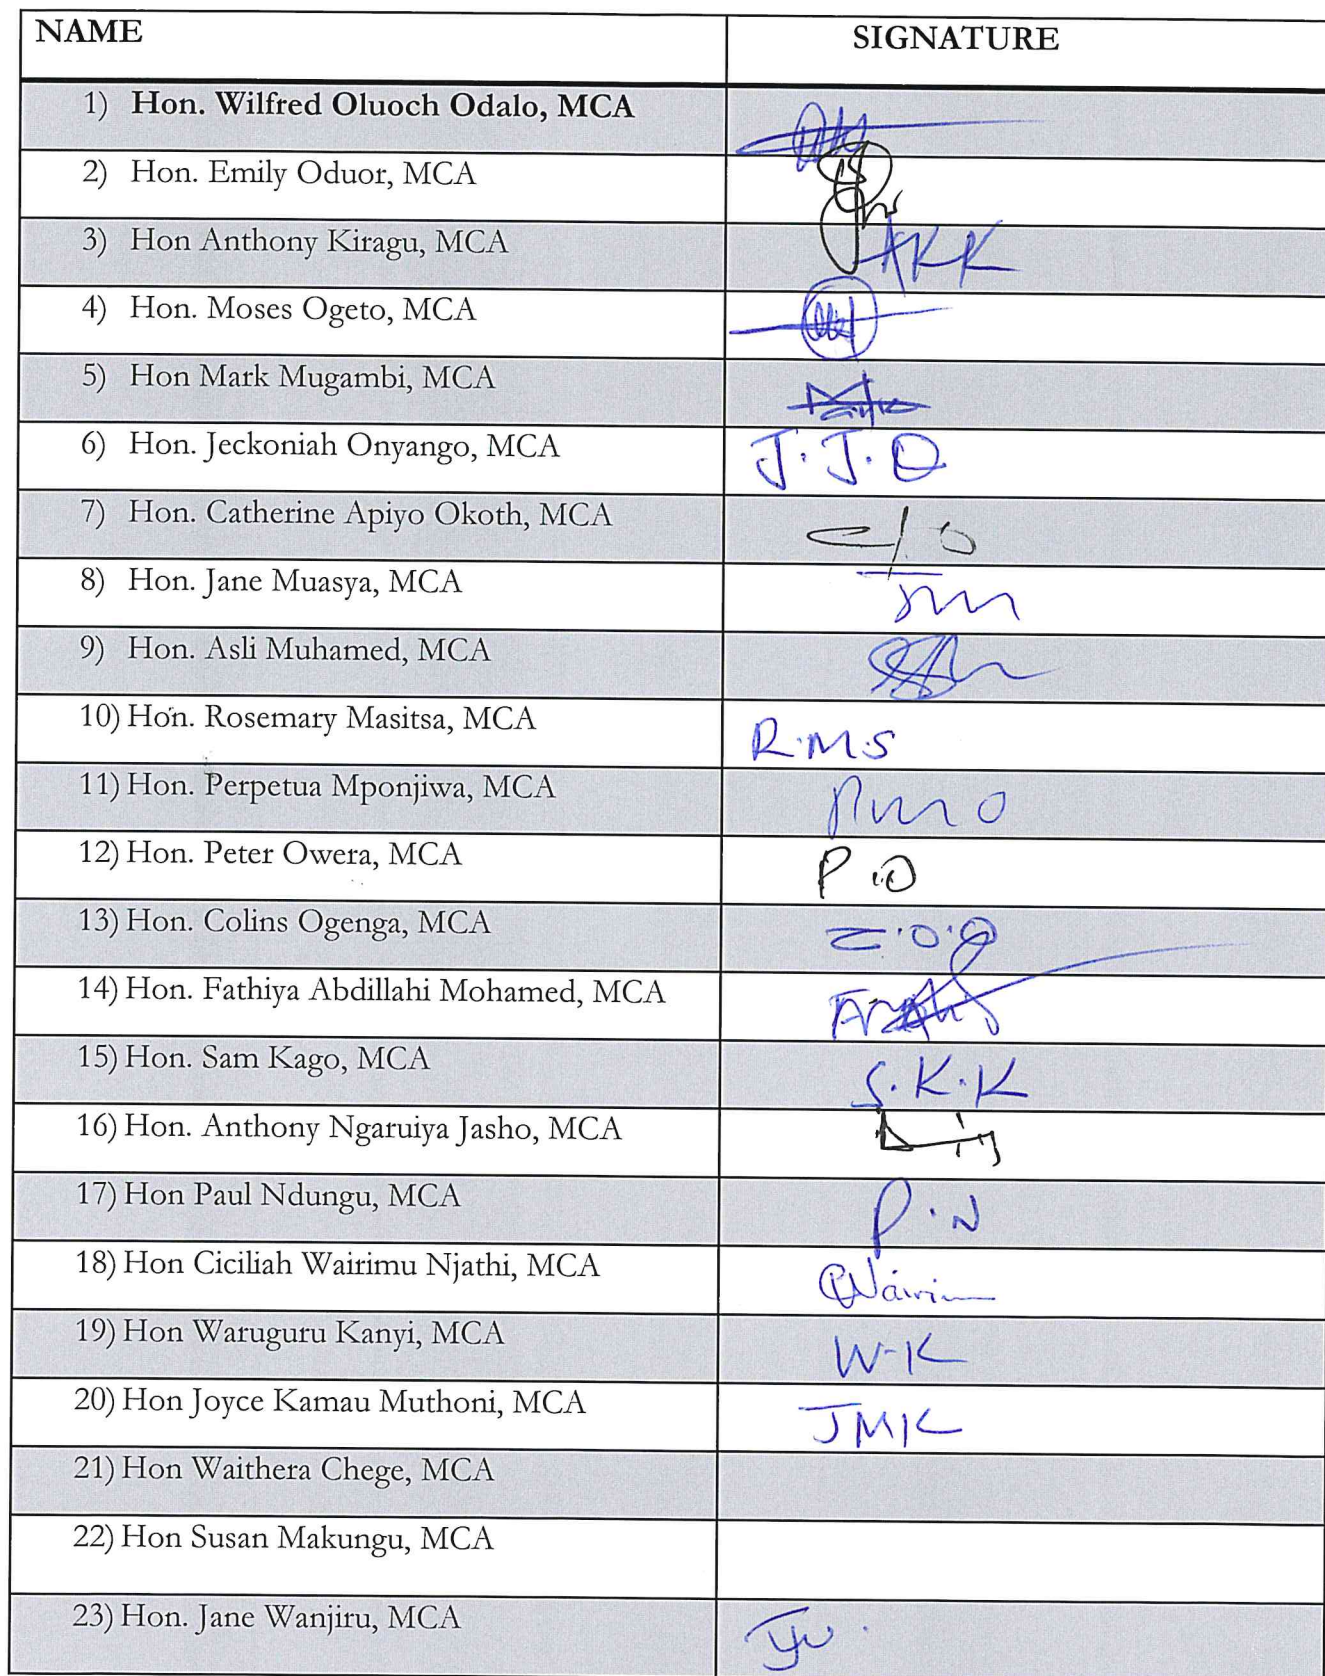 NAME SIGNATURE
1) Hon. Wilfred Oluoch Odalo, MCA
2) Hon. Emily Oduor, MCA
3) Hon Anthony Kiragu, MCA AKK
4) Hon. Moses Ogeto, MCA
5) Hon Mark Mugambi, MCA
6) Hon. Jeckoniah Onyango, MCA J.J.O
7) Hon. Catherine Apiyo Okoth, MCA
8) Hon. Jane Muasya, MCA
9) Hon. Asli Muhamed, MCA
10) Hon. Rosemary Masitsa, MCA R.M.S
11) Hon. Perpetua Mponjiwa, MCA
12) Hon. Peter Owera, MCA P.O
13) Hon. Colins Ogenga, MCA
14) Hon. Fathiya Abdillahi Mohamed, MCA
15) Hon. Sam Kago, MCA S.K.K
16) Hon. Anthony Ngaruiya Jasho, MCA
17) Hon Paul Ndungu, MCA P.N
18) Hon Ciciliah Wairimu Njathi, MCA
19) Hon Waruguru Kanyi, MCA W-K
20) Hon Joyce Kamau Muthoni, MCA JMK
21) Hon Waithera Chege, MCA
22) Hon Susan Makungu, MCA
23) Hon. Jane Wanjiru, MCA